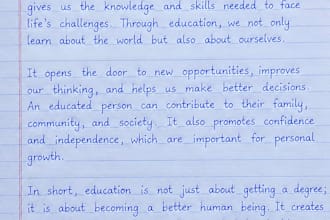 gives us the knowledge and skills needed to face
life's challenges. Through education, we not only
learn about the world but also about ourselves.
It opens the door to new opportunities, improves
our thinking, and helps us make better decisions.
An educated person can contribute to their family,
community, and society. It also promotes confidence
and independence, which are important for personal
growth.
In short, education is not just about getting a degree;
it is about becoming a better human being. It creates